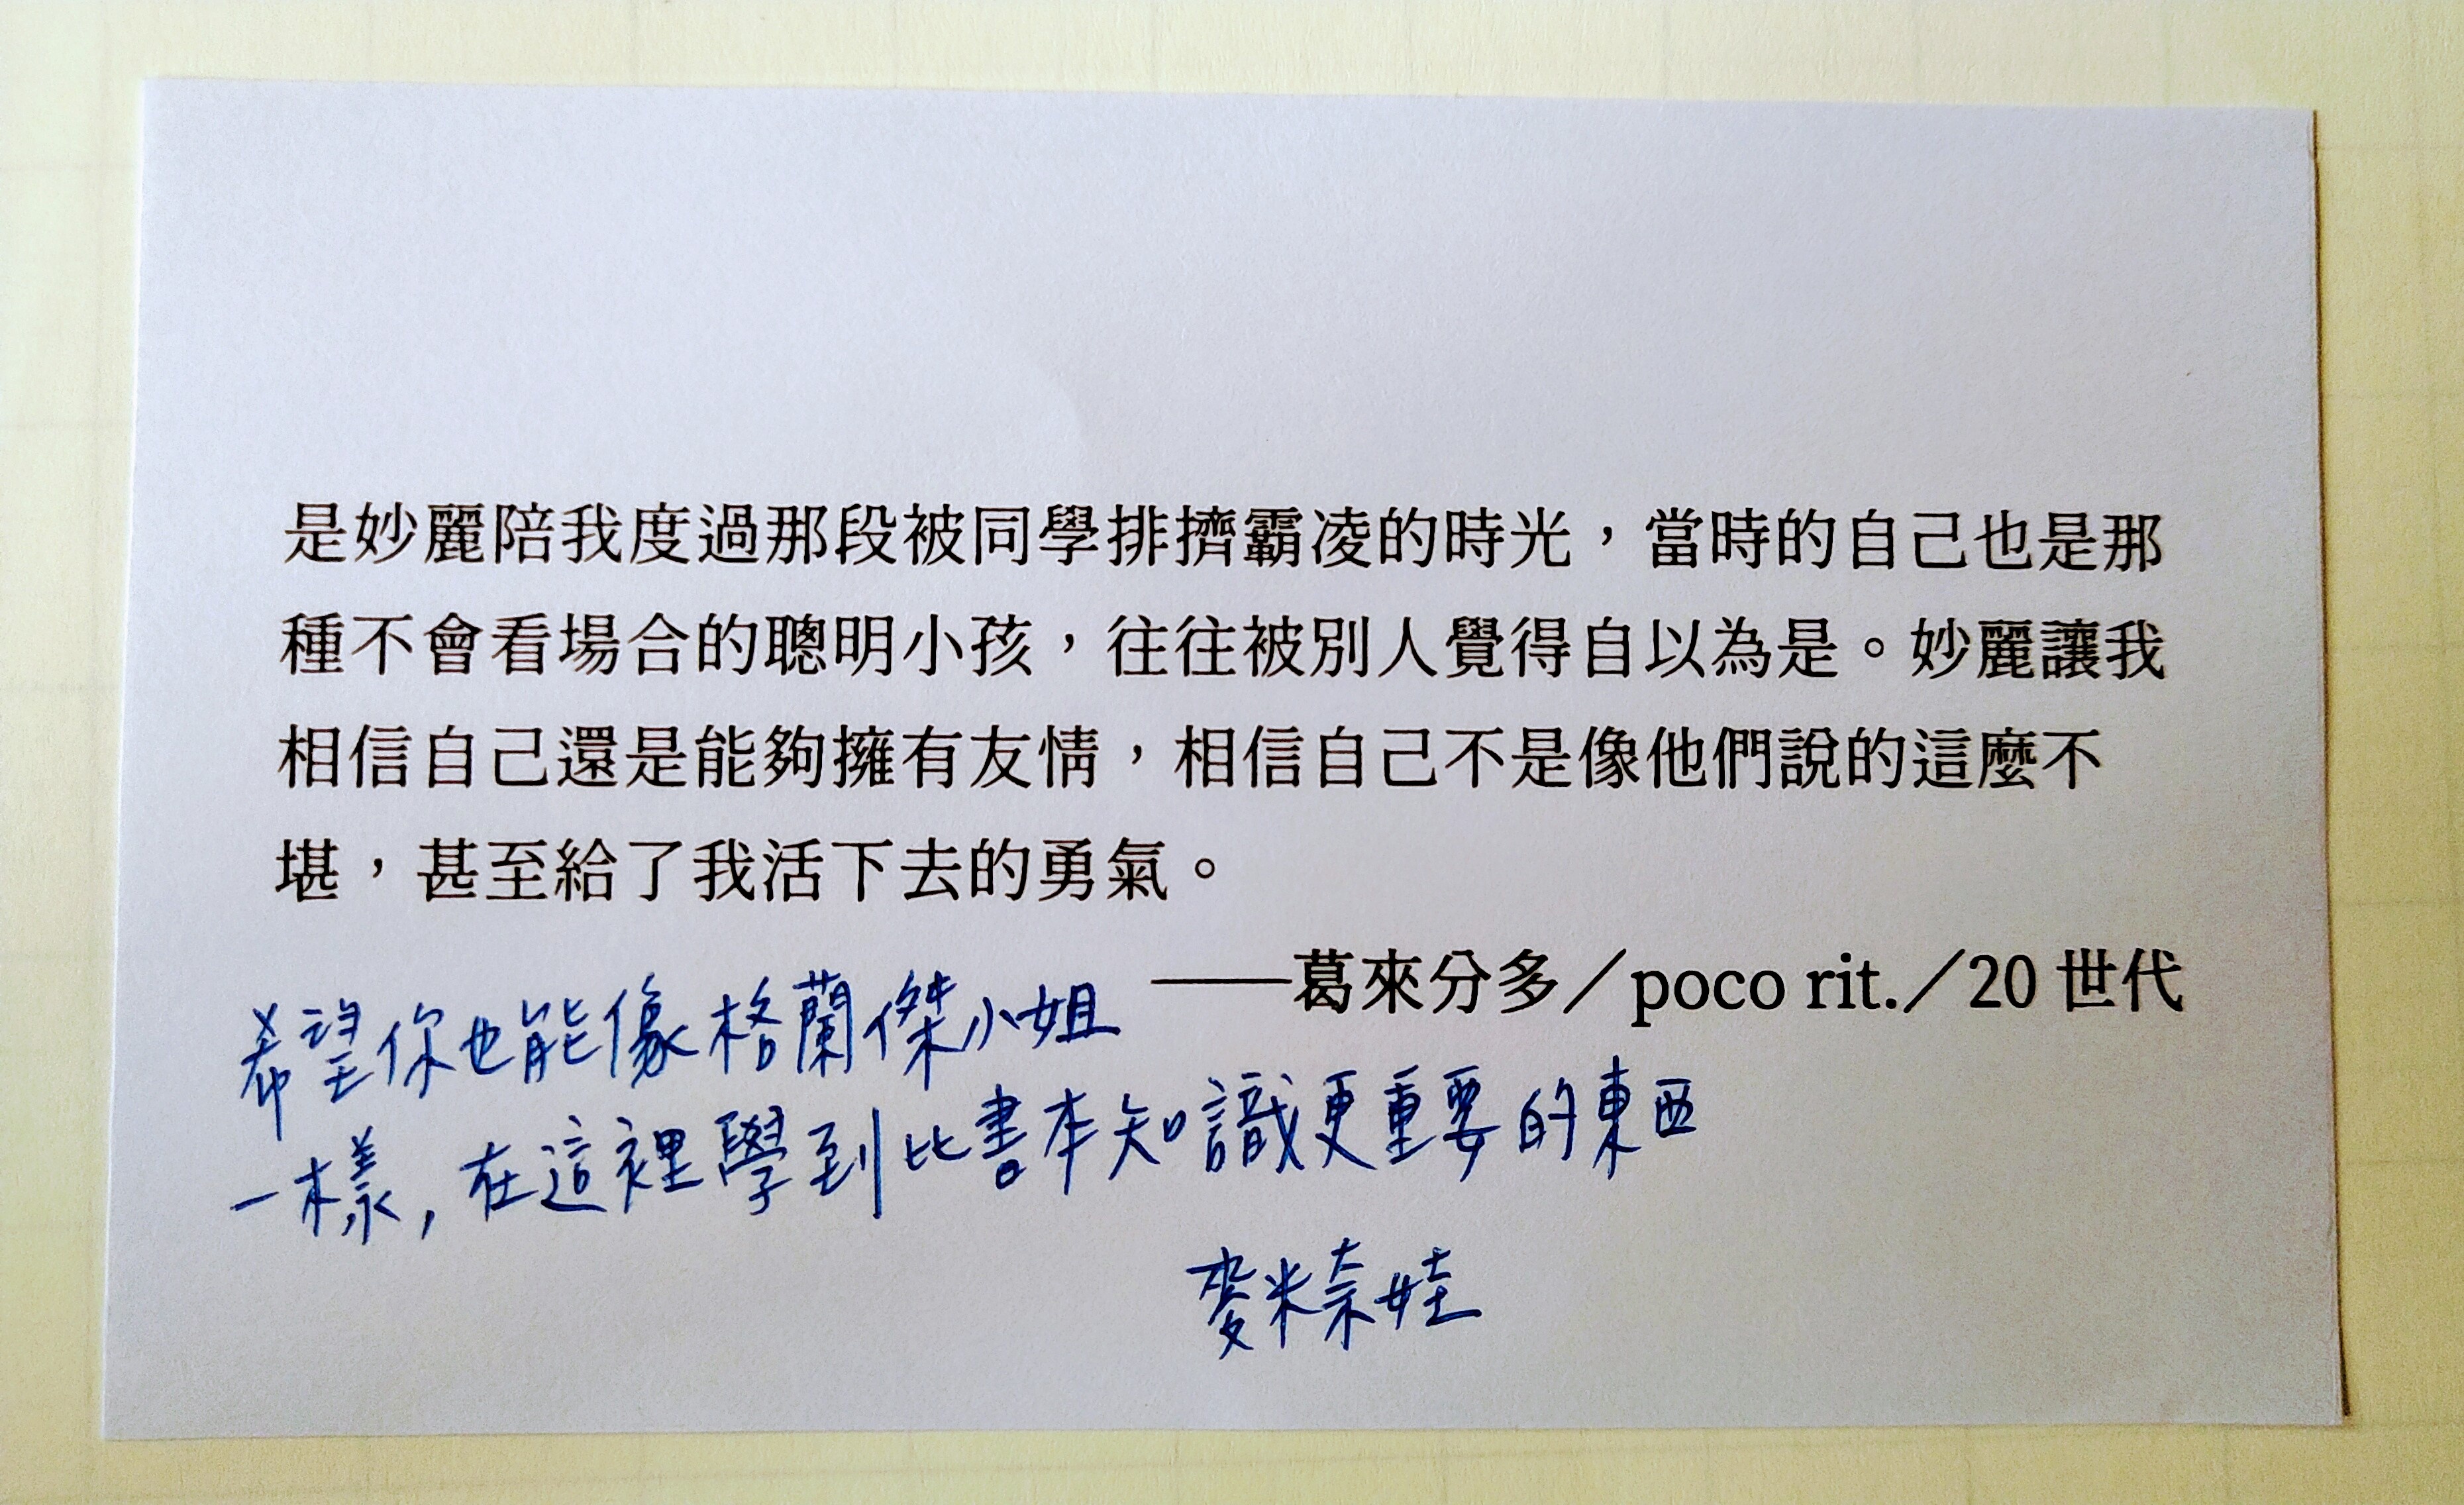 是妙麗陪我度過那段被同學排擠霸凌的時光，當時的自己也是那
種不會看場合的聰明小孩，往往被別人覺得自以為是。妙麗讓我
相信自己還是能夠擁有友情，相信自己不是像他們說的這麼不
堪，甚至給了我活下去的勇氣。
——葛來分多／poco rit.／20 世代
希望你也能像格蘭傑小姐
一樣，在這裡學到比書本知識更重要的東西
麥米奈娃